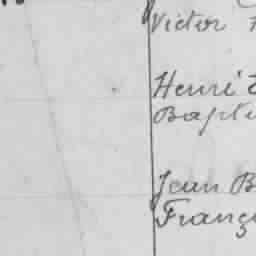 Victor
Henri
Bapti
Jean B
Franç